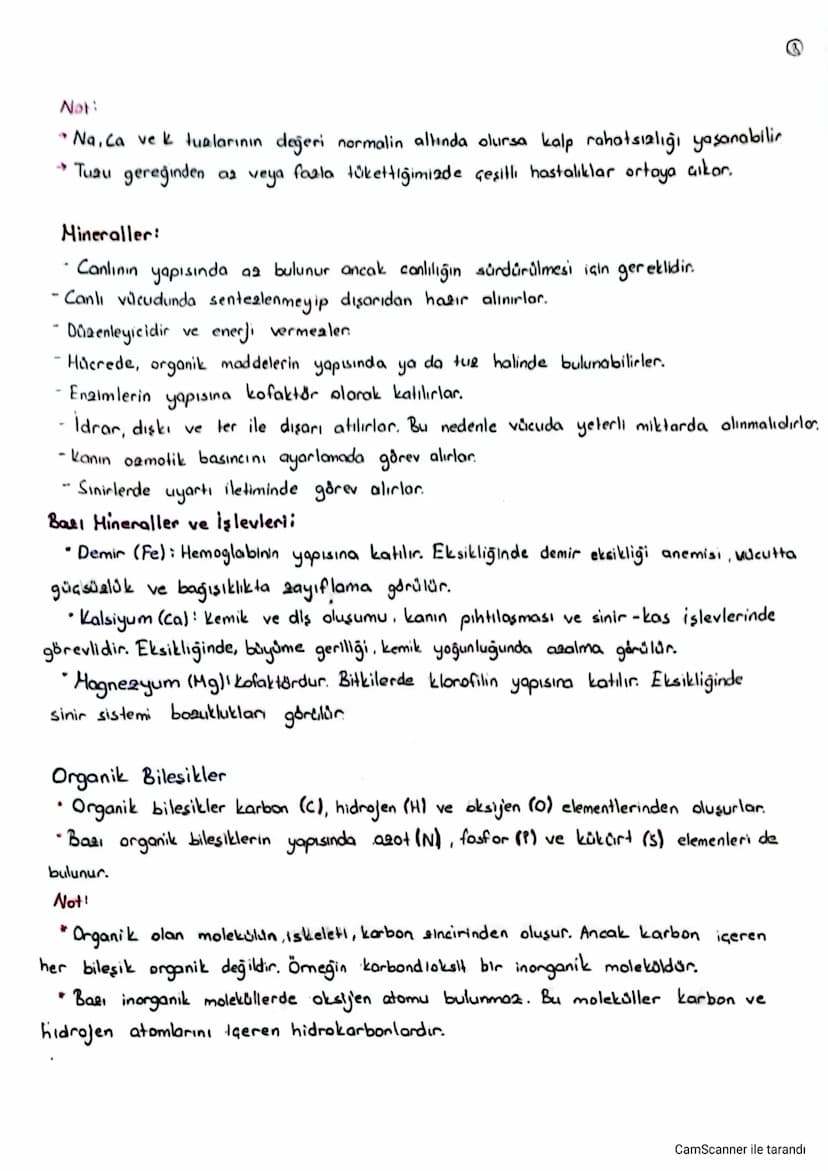 ③
Not:
→ Na, Ca ve K tuzlarının değeri normalin altında olursa kalp rahatsızlığı yaşanabilir
→ Tuzu gereğinden az veya fazla tükettiğimizde çeşitli hastalıklar ortaya çıkar.
Mineraller:
- Canlının yapısında az bulunur ancak canlılığın sürdürülmesi için gereklidir.
- Canlı vücudunda sentezlenmeyip dışarıdan hazır alınırlar.
- Düzenleyicidir ve enerji vermezler.
- Hücrede, organik maddelerin yapısında ya da tuz halinde bulunabilirler.
- Enzimlerin yapısına kofaktör olarak katılırlar.
- İdrar, dışkı ve ter ile dışarı atılırlar. Bu nedenle vücuda yeterli miktarda alınmalıdırlar.
- Kanın ozmotik basıncını ayarlamada görev alırlar.
- Sinirlerde uyartı iletiminde görev alırlar.
Bazı Mineraller ve İşlevleri:
• Demir (Fe): Hemoglobinin yapısına katılır. Eksikliğinde demir eksikliği anemisi, vücutta
güçsüzlük ve bağışıklıkta zayıflama görülür.
• Kalsiyum (Ca): Kemik ve diş oluşumu, kanın pıhtılaşması ve sinir-kas işlevlerinde
görevlidir. Eksikliğinde, büyüme geriliği, kemik yoğunluğunda azalma görülür.
• Magnezyum (Mg): Kofaktördur. Bitkilerde klorofilin yapısına katılır. Eksikliğinde
sinir sistemi bozuklukları görülür.
Organik Bileşikler
• Organik bileşikler karbon (C), hidrojen (H) ve oksijen (O) elementlerinden oluşurlar.
• Bazı organik bileşiklerin yapısında azot (N), fosfor (P) ve kükürt (S) elemenleri de
bulunur.
Not!
* Organik olan molekülün, iskeleti, karbon zincirinden oluşur. Ancak karbon içeren
her bileşik organik değildir. Örneğin karbondioksit bir inorganik moleküldür.
* Bazı inorganik moleküllerde oksijen atomu bulunmaz. Bu moleküller karbon ve
hidrojen atomlarını içeren hidrokarbonlardır.
CamScanner ile tarandı